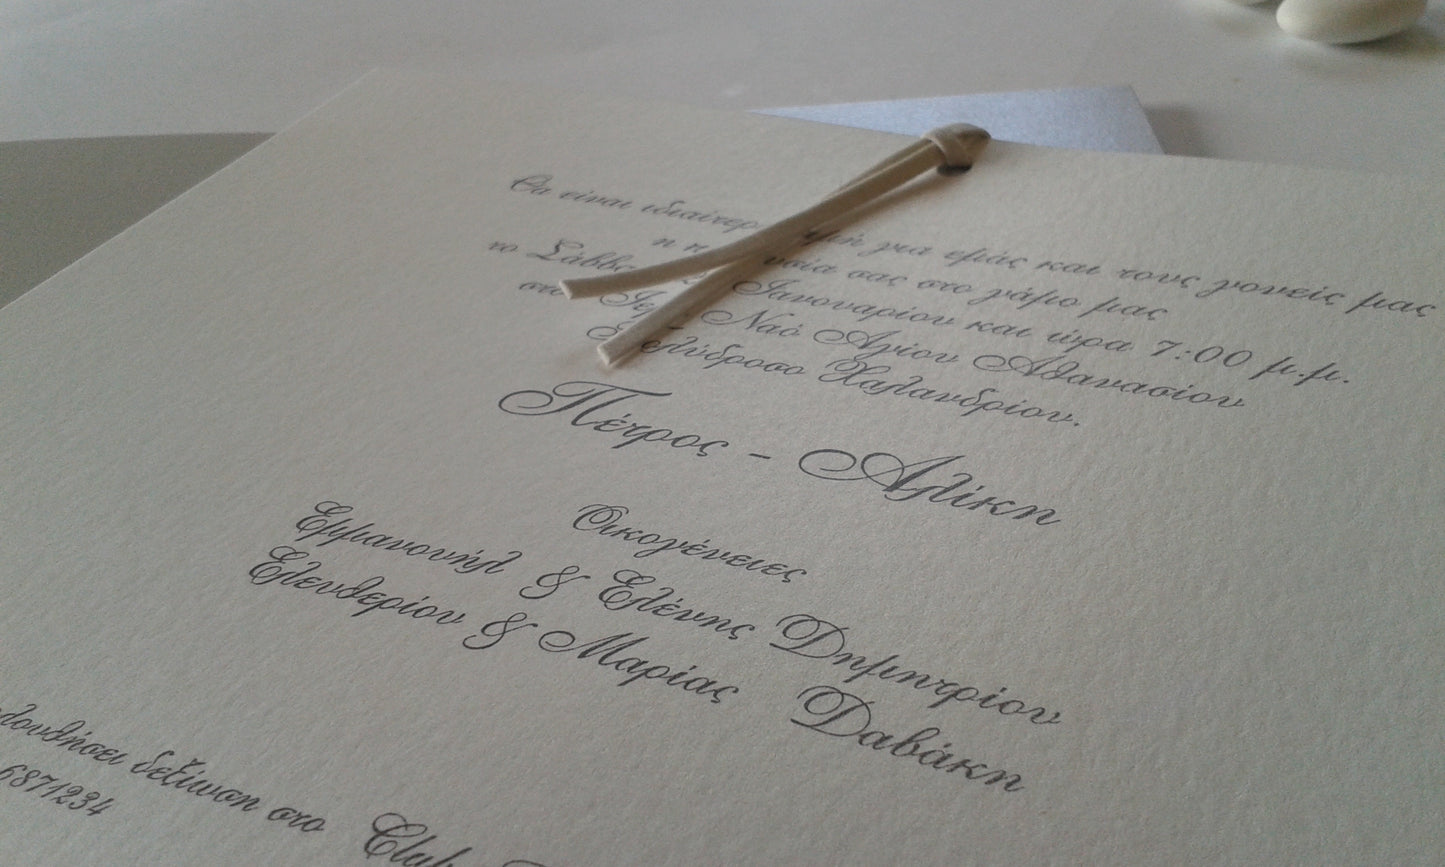 Θα είναι ιδιαίτερη τιμή για εμάς και τους γονείς μας
η παρουσία σας στο γάμο μας
το Σάββατο Ιανουαρίου και ώρα 7:00 μ.μ.
στον Ιερό Ναό Αγίου Αθανασίου
Πολύδροσο Χαλανδρίου.
Πέτρος - Αλίκη
Οικογένειες
Εμμανουήλ & Ελένης Δημητρίου
Ελευθερίου & Μαρίας Δαβάκη
δεξίωση στο Club
6871234